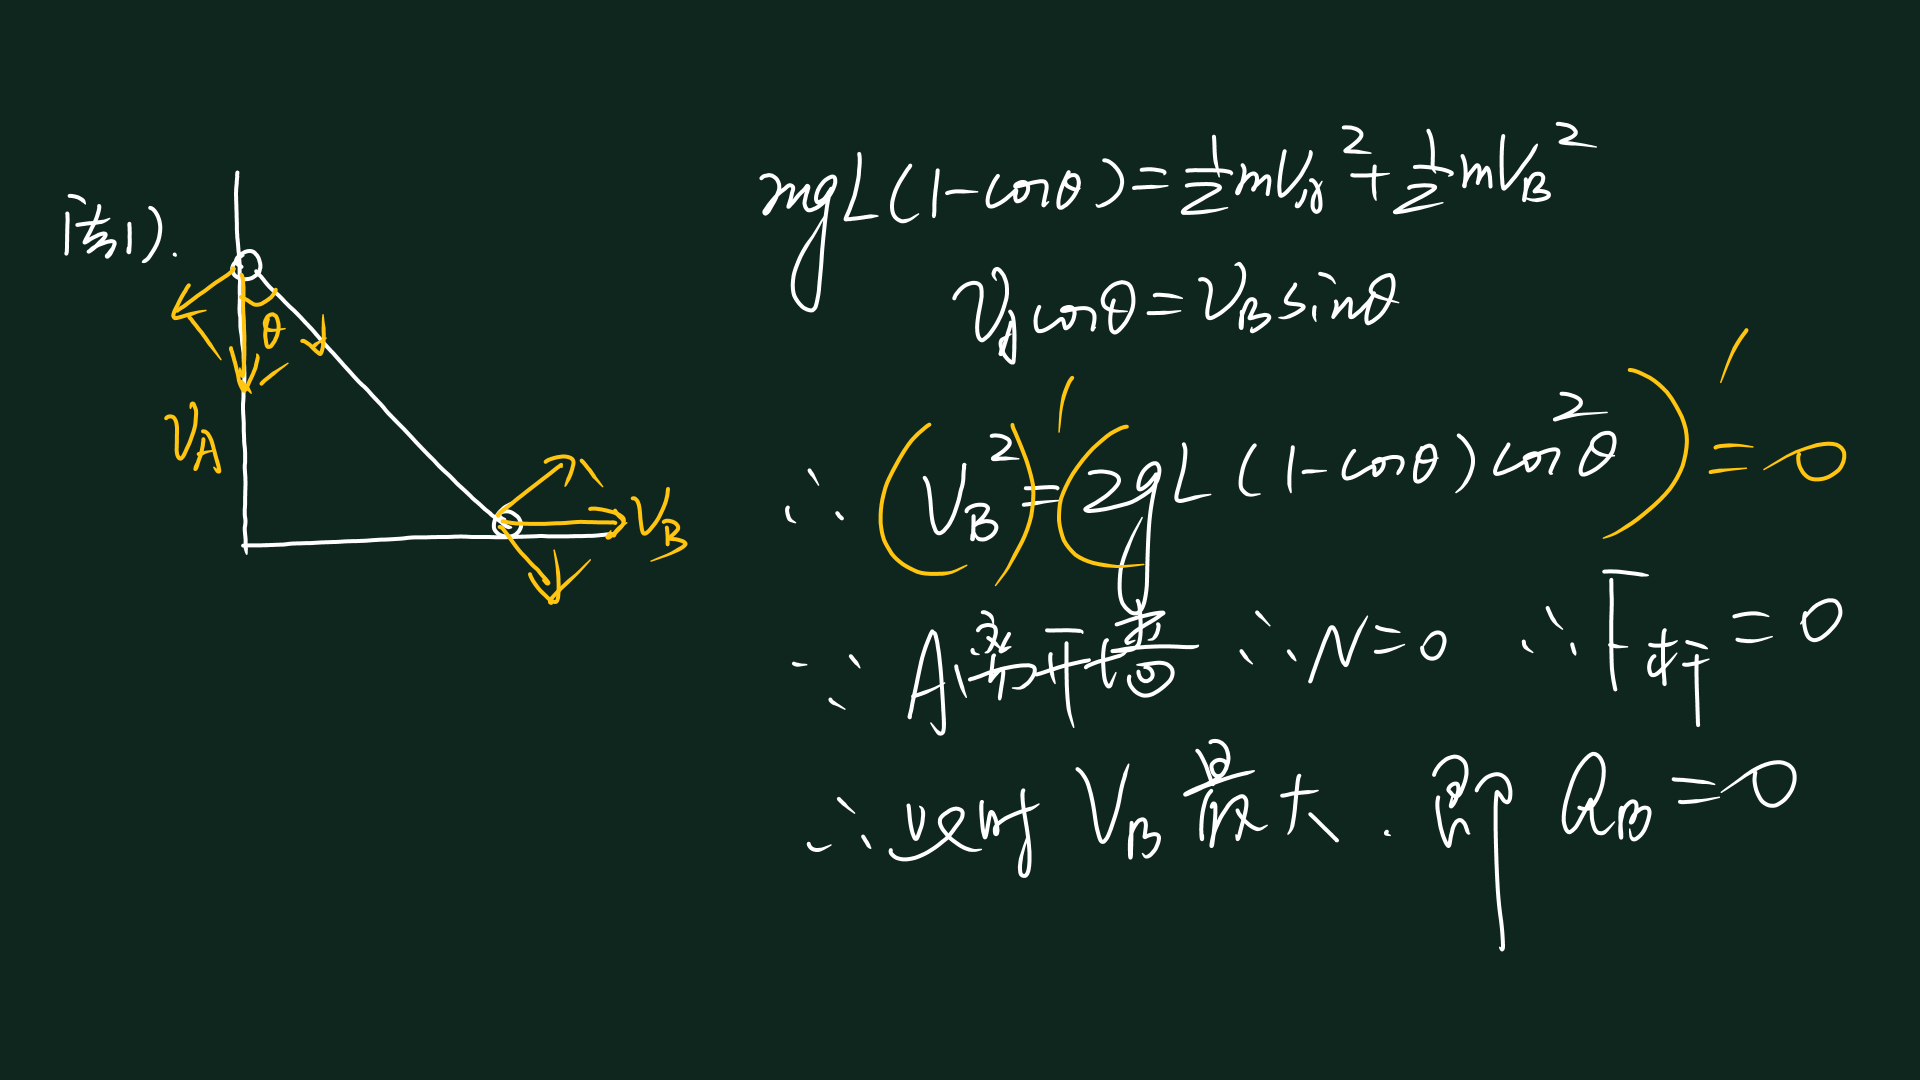 法1).
θ
V_A
V_B
mgL(1-cosθ)=½mV_A²+½mV_B²
V_A cosθ=V_B sinθ
∴ (V_B²)'=(2gL(1-cosθ)cos²θ)'=0
∵ A离开墙 ∴N=0 ∴F杆=0
∴此时 V_B 最大. 即 a_B=0